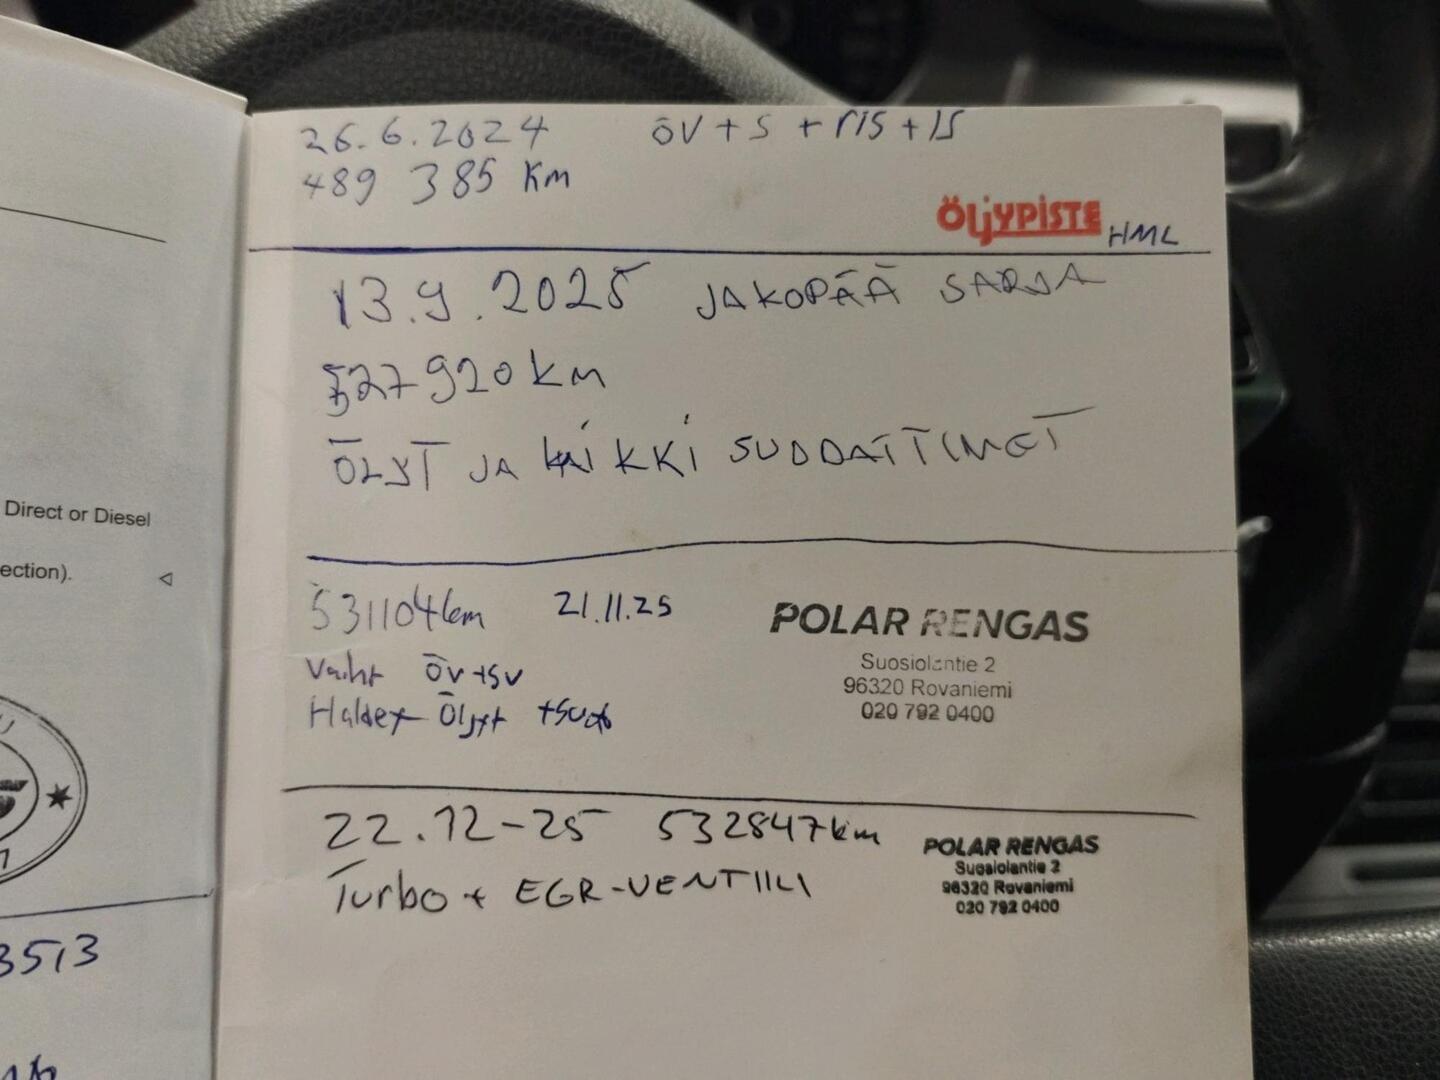 Direct or Diesel
ection).
3513
26.6.2024 ÖV + S + riS + IS
489 385 km
ÖLJYPISTE HML
13.9.2025 JAKOPÄÄ SARJA
527920 km
ÖLJYT JA KAIKKI SUODATTIMET
531104km 21.11.25
Vaiht Öv+sv
Haldex Öljyt +suod
POLAR RENGAS
Suosiolantie 2
96320 Rovaniemi
020 792 0400
22.12-25 532847km
Turbo + EGR-VENTIILI
POLAR RENGAS
Suosiolantie 2
96320 Rovaniemi
020 792 0400